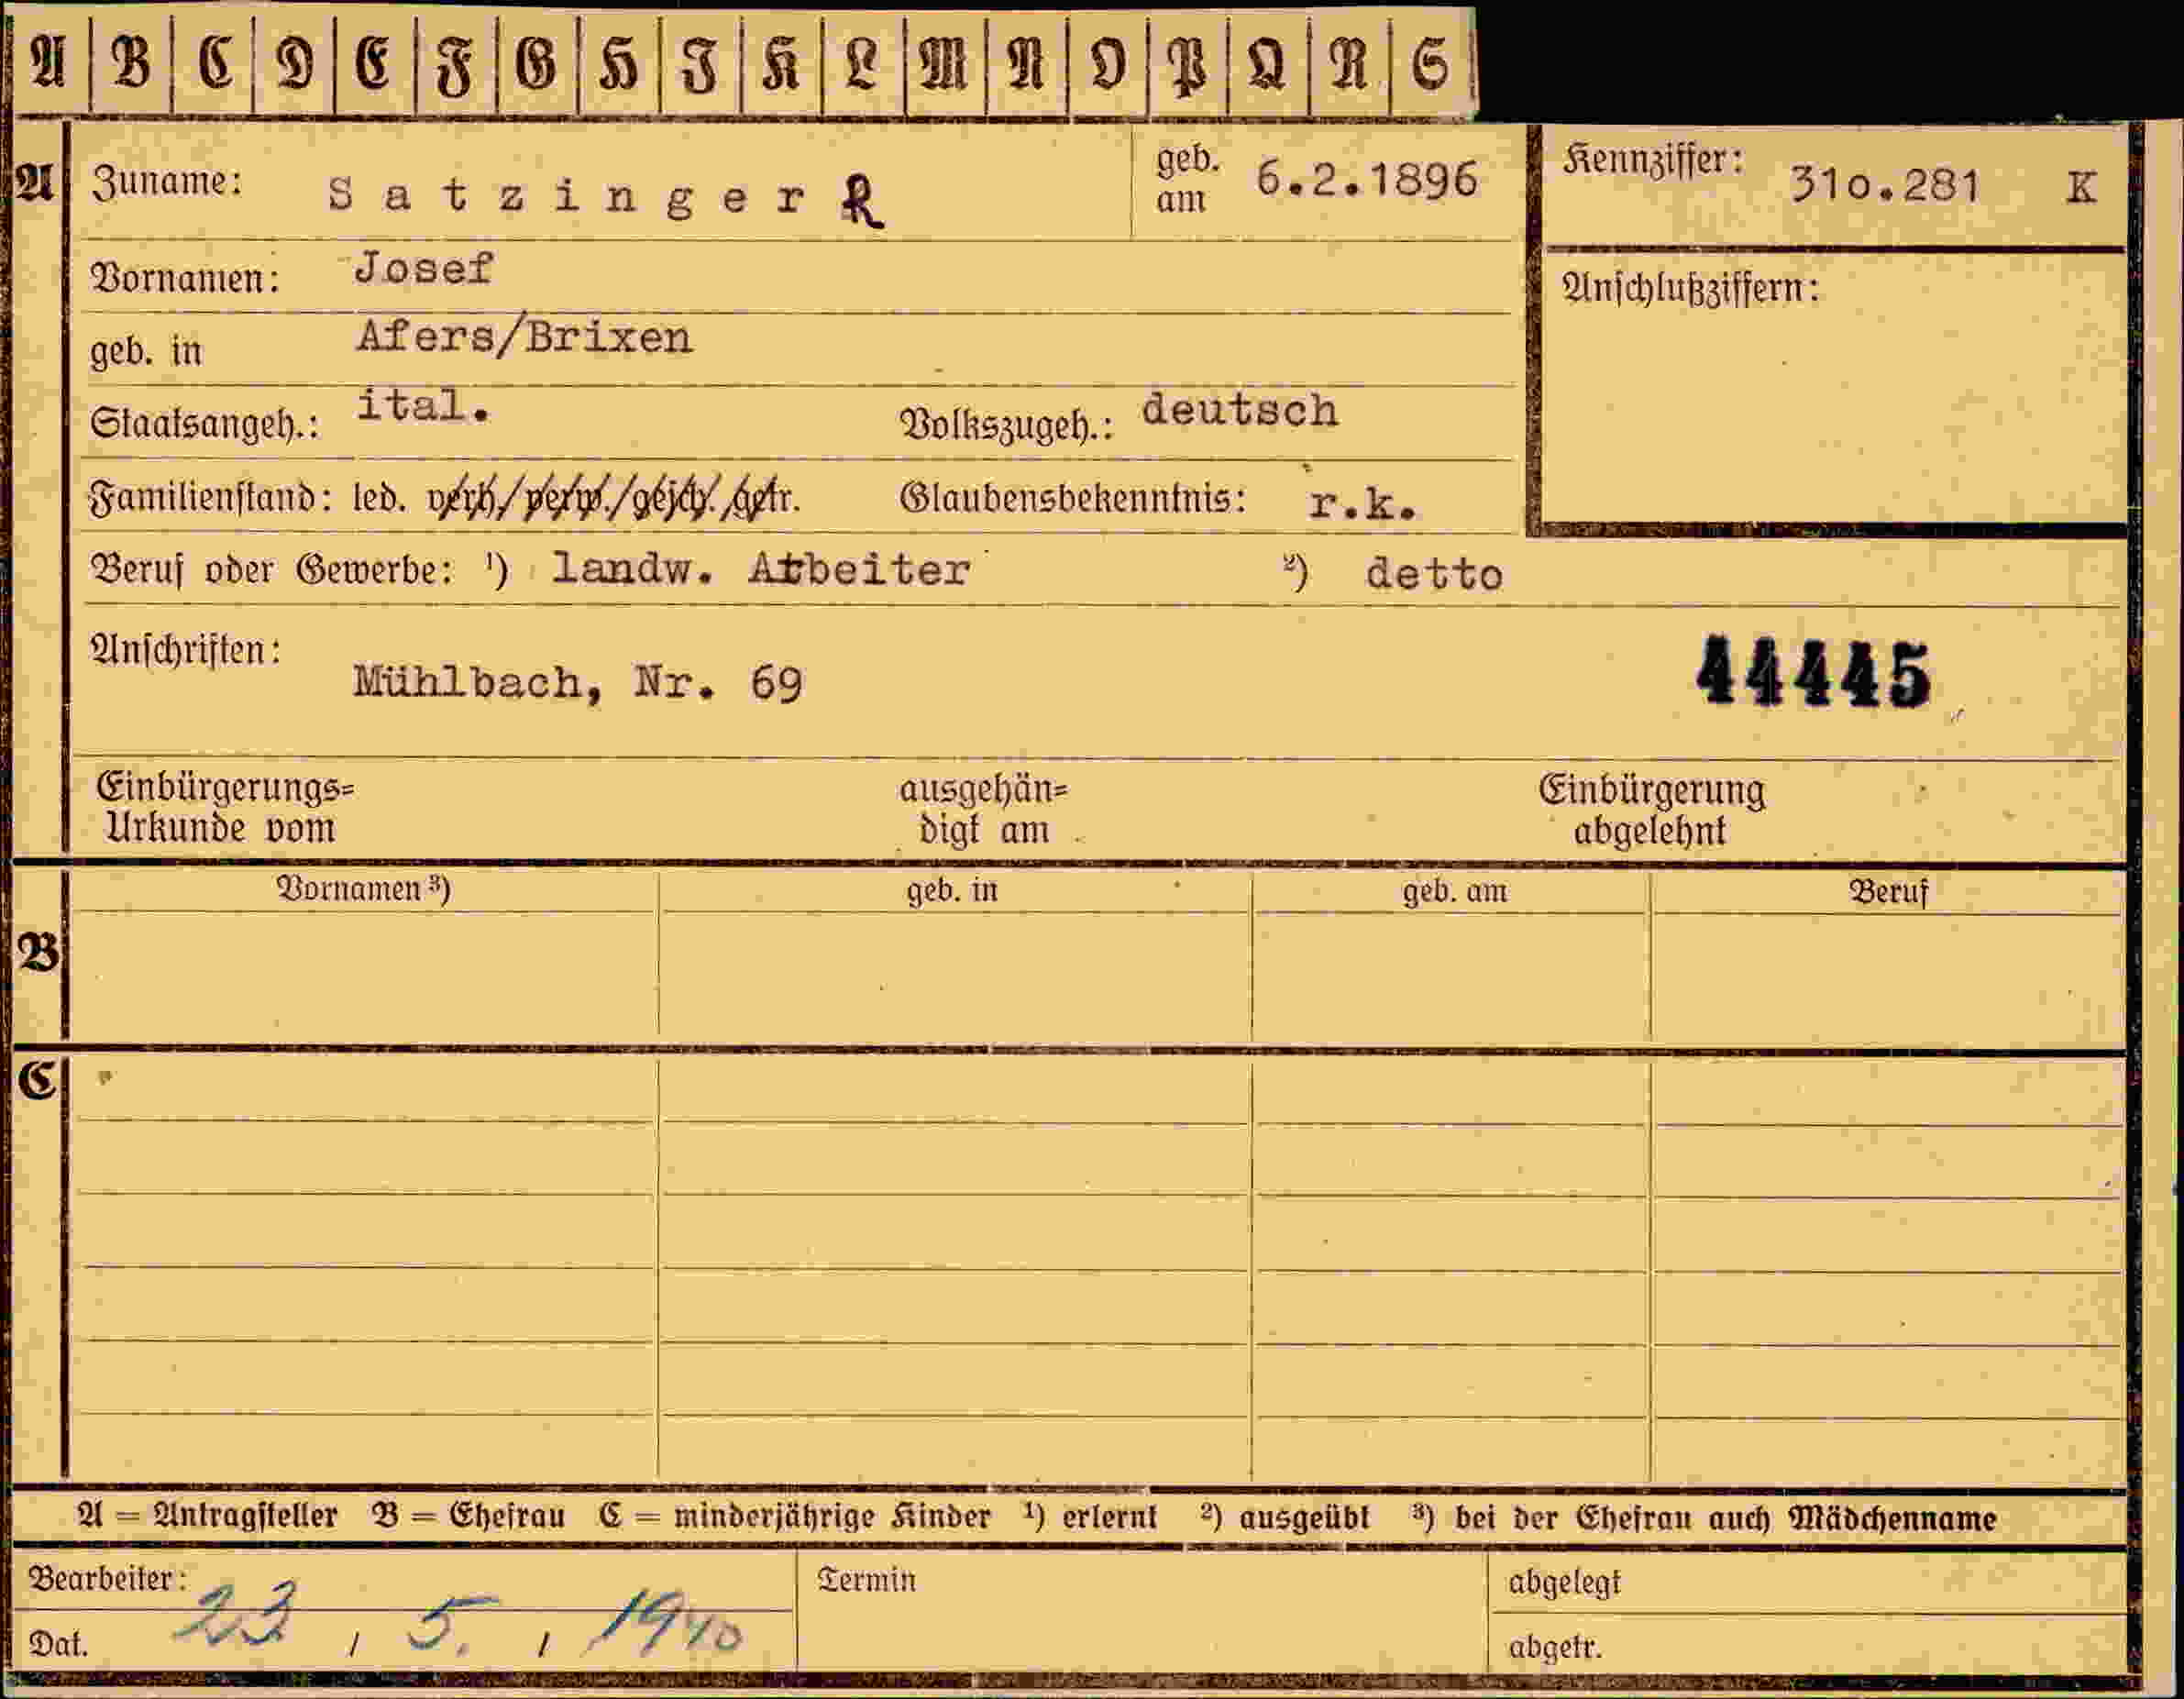 A B C D E F G H I K L M N O P Q R S
A Zuname: Satzinger R geb. am 6.2.1896 Kennziffer: 31o.281 K
Vornamen: Josef Anschlußziffern:
geb. in Afers/Brixen
Staatsangeh.: ital. Volkszugeh.: deutsch
Familienstand: led. verh/verw./gesch. getr. Glaubensbekenntnis: r.k.
Beruf oder Gewerbe: ¹) landw. Arbeiter ²) detto
Anschriften: Mühlbach, Nr. 69 44445
Einbürgerungs= ausgehän= Einbürgerung
Urkunde vom digt am abgelehnt
Vornamen ³) geb. in geb. am Beruf
B
C
A = Antragsteller B = Ehefrau C = minderjährige Kinder ¹) erlernt ²) ausgeübt ³) bei der Ehefrau auch Mädchenname
Bearbeiter: Termin abgelegt
Dat. 23 / 5. / 1940 abgetr.